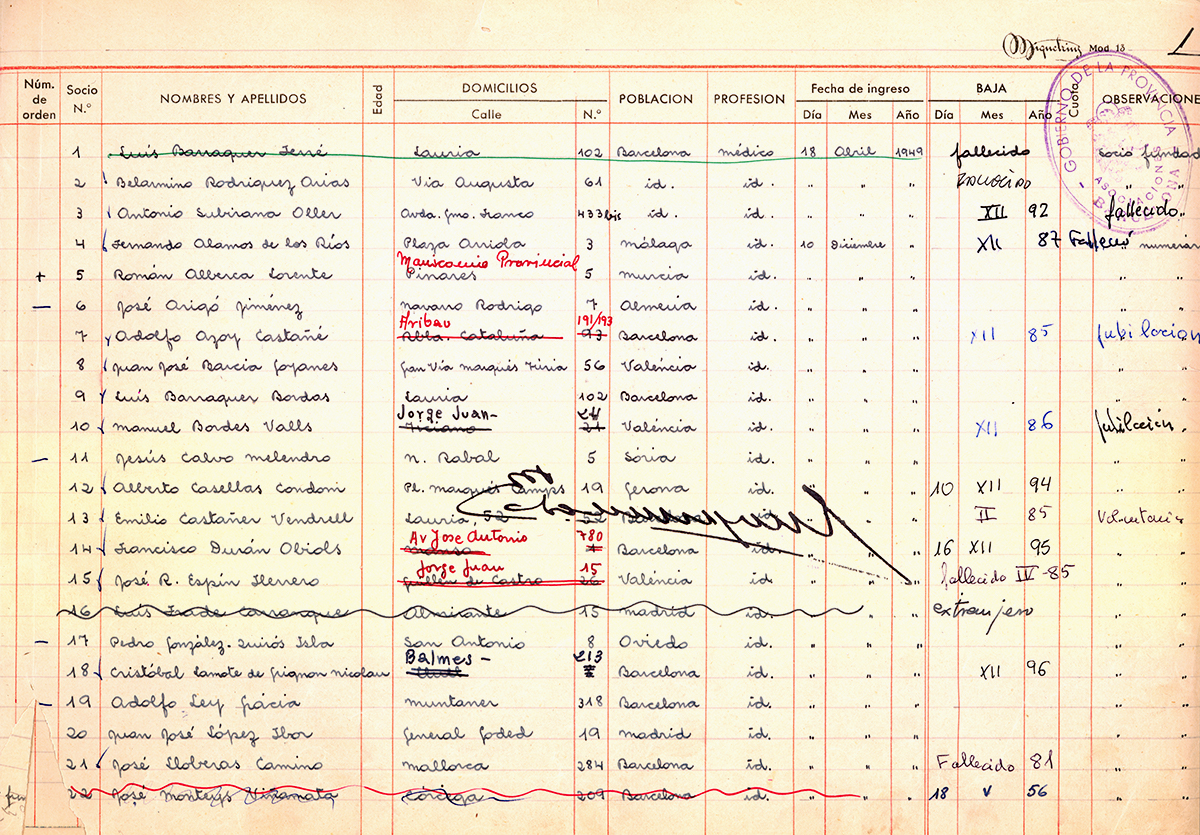 Miquelrius Mod. 13 1
Núm. de orden Socio N.º NOMBRES Y APELLIDOS Edad DOMICILIOS Calle N.º POBLACION PROFESION Fecha de ingreso Día Mes Año BAJA Día Mes Año Cuota OBSERVACIONE
GOBIERNO DE LA PROVINCIA ASOCIACIONES
1 Luís Barraquer Ferré Lauria 102 Barcelona médico 18 Abril 1949 fallecido socio fundad
2 Belarmino Rodriguez Arias Via Augusta 61 id. id. " " " FALLECIDO " "
3 Antonio Subirana Oller Avda. Gmo. Franco 433 bis id. id. " " " XII 92 fallecido "
4 Fernando Alamos de los Ríos Plaza Arriola 3 málaga id. 10 Diciembre " XII 87 Falleció numerari
Manicomio Provincial
+ 5 Román Alberca Lorente Pinares 5 murcia id. " " " " "
— 6 José Arigó Jiménez navarro Rodrigo 7 Almeria id. " " " " "
Aribau 191/193
7 Adolfo Azoy Castañé Rbla. Cataluña 93 Barcelona id. " " " XII 85 Jubilación
8 Juan José Barcia Goyanes Gran Vía marqués Turia 56 València id. " " " " "
9 Luís Barraquer Bordas Lauria 102 Barcelona id. " " " " "
Jorge Juan- 24
10 manuel Bordes Valls Ticiano 21 València id. " " " XII 86 Jubilación "
— 11 Jesús Calvo melendro n. Rabal 5 Sória id. " " " " "
12 Alberto Casellas Condom Pl. marqués Camps 19 Gerona id. " " " 10 XII 94 " "
13 Emilio Castañer Vendrell Lauria, 52 52 id. " " " II 85 Voluntaria
Av Jose Antonio 780
14 Francisco Durán Obiols Barcelona id. " " " 16 XII 95 " "
Jorge Juan 15
15 José R. Espín Herrero Guillén de Castro 26 València id. " " " fallecido IV-85 " "
16 Luís Almirante 15 madrid id. " " extranjero " "
— 17 Pedro González-Quirós Isla San Antonio 8 Oviedo id. " " " " "
Balmes - 213
18 Cristóbal Lamote de Grignon nicolau Barcelona id. " " " XII 96 " "
— 19 Adolfo Ley Gràcia muntaner 318 Barcelona id. " " " " "
20 Juan José López Ibor General Goded 19 madrid id. " " " " "
21 José Lloberas Camino mallorca 284 Barcelona id. " " " Fallecido 81 " "
22 José monteys Viñamata Còrcega 209 Barcelona id. " " " 18 V 56 " "